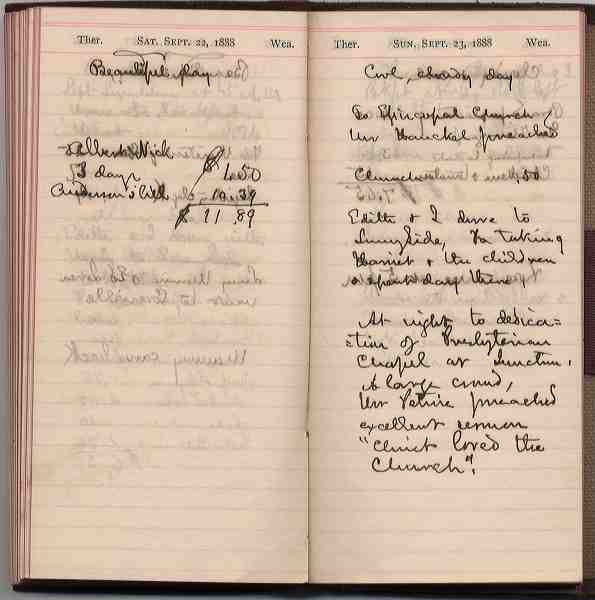 Ther. SAT. SEPT. 22, 1888 Wea.
Beautiful day
Albert Nick
3 days $ 1.50
Anderson's bill 10.39
$ 11.89
Ther. SUN. SEPT. 23, 1888 Wea.
Cool, cloudy day
To Episcopal Church
Mr Hanckel preached
Church &
Edith & I drove to
Sunnyside, Va taking
Harriet & the children
& spent day there,
At night to dedica=
=tion of Presbyterian
Chapel at Junction.
A large crowd,
Mr preached
excellent sermon
"Christ loved the
Church".